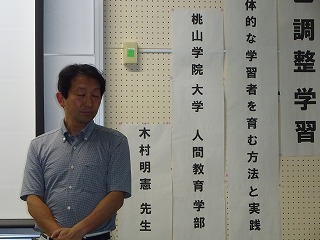 調整学習
体的な学習者を育む方法と実践
桃山学院大学 人間教育学部
木村明憲 先生